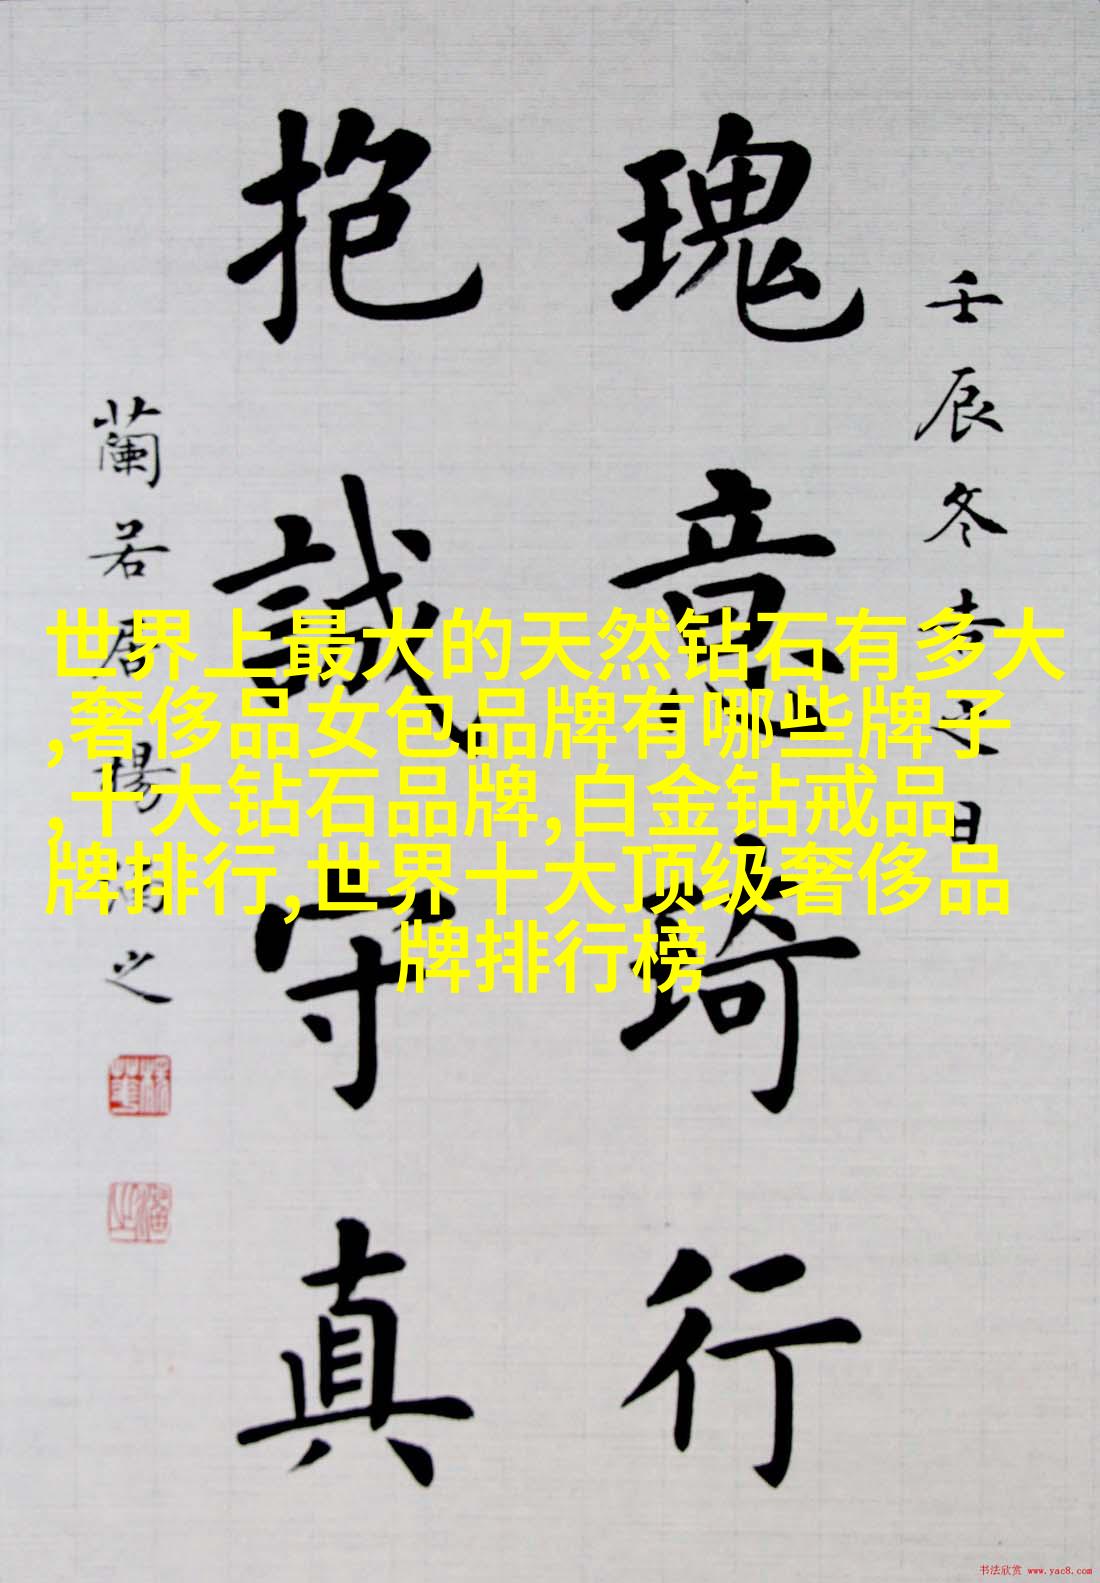 壬辰冬吉之日
瑰意琦行
抱誠守真
蘭若居揚 之
世界上最大的天然钻石有多大
,奢侈品女包品牌有哪些牌子
,十大钻石品牌,白金钻戒品
牌排行,世界十大顶级奢侈品
牌排行榜
书法欣赏 www.yac8.com